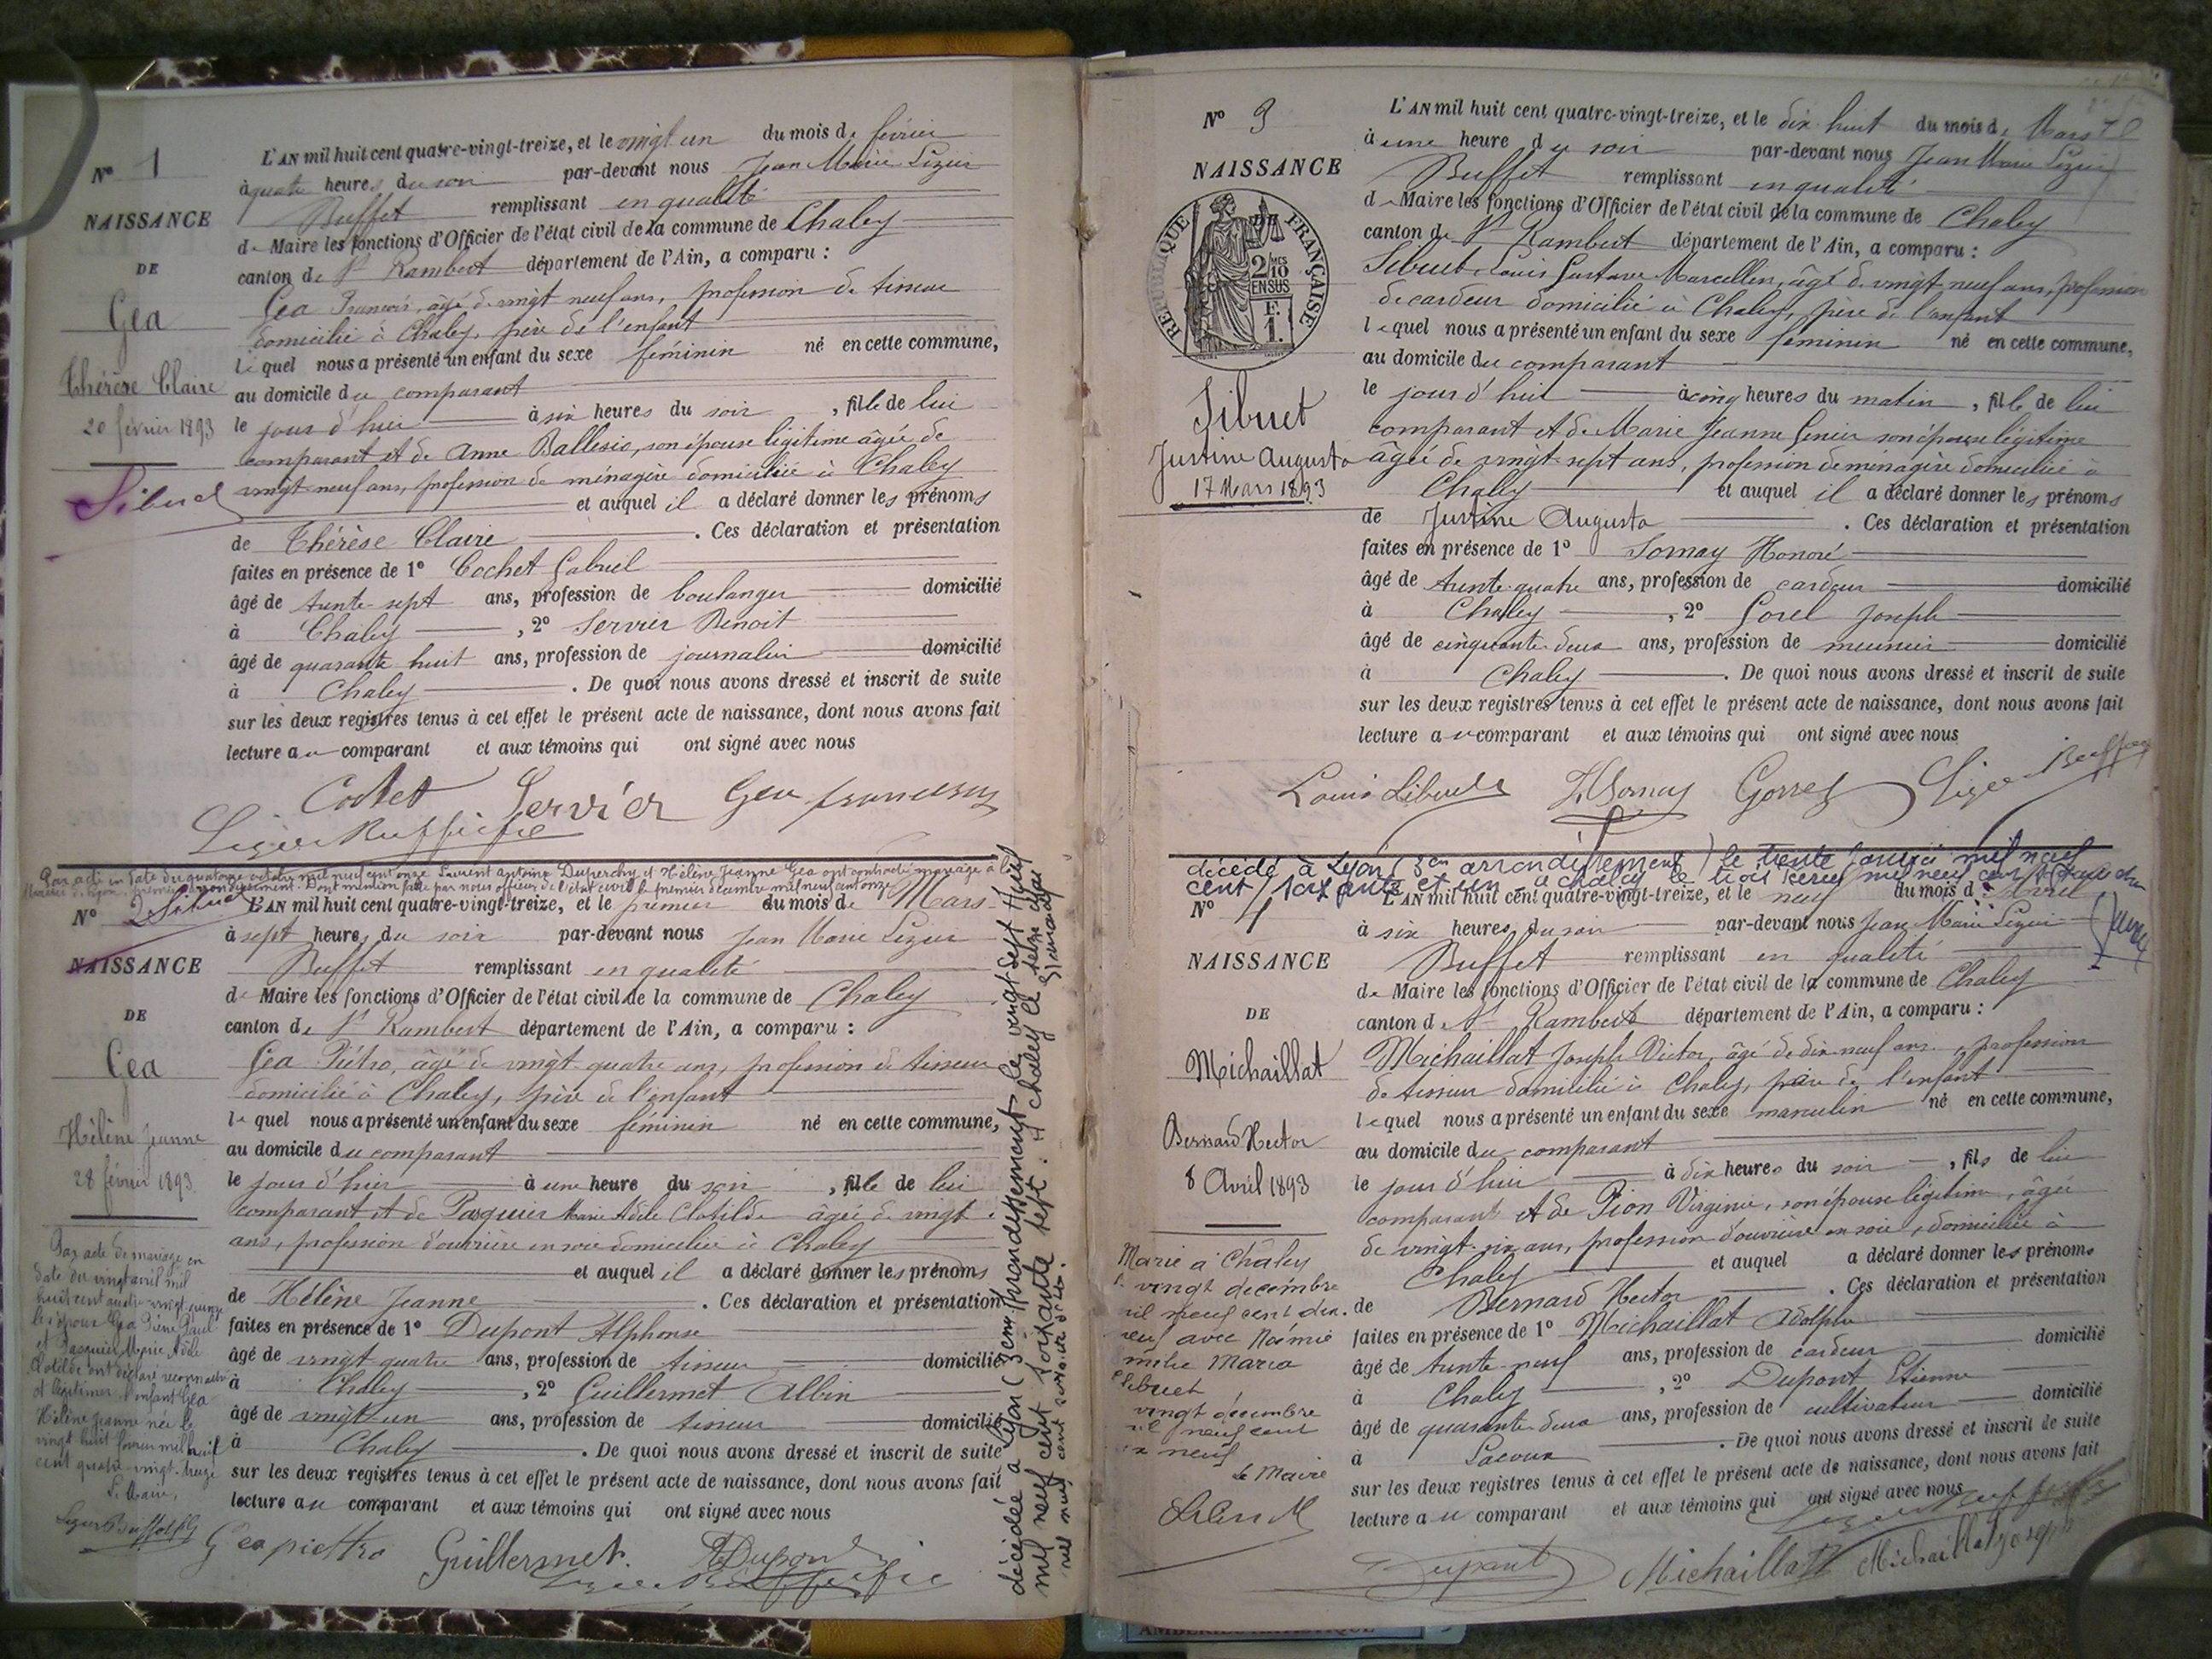 N° 1
NAISSANCE
DE
Gea
Thérèse Claire
20 février 1893
Sibuet
L'AN mil huit cent quatre-vingt-treize, et le vingt un du mois de février
à quatre heures du soir par-devant nous Jean Marie Lizier
Buffet remplissant en qualité
de Maire les fonctions d'Officier de l'état civil de la commune de Chaley
canton de St Rambert département de l'Ain, a comparu :
Gea François, âgé de vingt neuf ans, profession de tisseur
domicilié à Chaley, père de l'enfant
lequel nous a présenté un enfant du sexe féminin né en cette commune,
au domicile du comparant
le jour d'hier à six heures du soir, fille de lui
comparant et de Anne Ballesio, son épouse légitime âgée de
vingt neuf ans, profession de ménagère domiciliée à Chaley
et auquel il a déclaré donner les prénoms
de Thérèse Claire. Ces déclaration et présentation
faites en présence de 1° Cochet Gabriel
âgé de trente-sept ans, profession de boulanger domicilié
à Chaley, 2° Servier Benoit
âgé de quarante huit ans, profession de journalier domicilié
à Chaley. De quoi nous avons dressé et inscrit de suite
sur les deux registres tenus à cet effet le présent acte de naissance, dont nous avons fait
lecture au comparant et aux témoins qui ont signé avec nous
Cochet Servier Gea
Par acte en date du quatorze octobre mil neuf cent onze Laurent Antoine et Hélène Jeanne Gea ont contracté mariage à la
Mairie de Lyon, arrondissement. Dont mention faite par nous officier de l'état civil le premier décembre mil neuf cent onze
N° 2
Sibuet
NAISSANCE
DE
Gea
Hélène Jeanne
28 février 1893
L'AN mil huit cent quatre-vingt-treize, et le premier du mois de Mars
à sept heures du soir par-devant nous Jean Marie Lizier
Buffet remplissant en qualité
de Maire les fonctions d'Officier de l'état civil de la commune de Chaley
canton de St Rambert département de l'Ain, a comparu :
Gea Piétro, âgé de vingt quatre ans, profession de tisseur
domicilié à Chaley, père de l'enfant
lequel nous a présenté un enfant du sexe féminin né en cette commune,
au domicile du comparant
le jour d'hier à une heure du soir, fille de lui
comparant et de Pasquier Marie Adèle Clotilde âgée de vingt
ans, profession d'ouvrière en soie domiciliée à Chaley
et auquel il a déclaré donner les prénoms
de Hélène Jeanne. Ces déclaration et présentation
faites en présence de 1° Dupont Alphonse
âgé de vingt quatre ans, profession de tisseur domicilié
à Chaley, 2° Guillermet Albin
âgé de vingt un ans, profession de tisseur domicilié
à Chaley. De quoi nous avons dressé et inscrit de suite
sur les deux registres tenus à cet effet le présent acte de naissance, dont nous avons fait
lecture au comparant et aux témoins qui ont signé avec nous
Par acte de mariage en
date du vingt avril mil
huit cent quatre-vingt quinze
les époux Gea Pierre Paul
et Pasquier Marie Adèle
Clotilde ont déclaré reconnaitre
et légitimer l'enfant Gea
Hélène Jeanne née le
vingt huit février mil huit
cent quatre-vingt-treize
Le Maire,
Gea pietro Guillermet. Dupont
décédée à Lyon (3em Arrondissement) le vingt sept Avril
mil neuf cent soixante sept. à chaley le seize mai
mil neuf cent soixante sept.
N° 3
NAISSANCE
RÉPUBLIQUE FRANÇAISE
2/10 MES
EN SUS
F.
1.
Sibuet
Justine Augusta
17 Mars 1893
L'AN mil huit cent quatre-vingt-treize, et le dix huit du mois de Mars
à une heure du soir par-devant nous Jean Marie Lizier
Buffet remplissant en qualité
de Maire les fonctions d'Officier de l'état civil de la commune de Chaley
canton de St Rambert département de l'Ain, a comparu :
Sibuet Louis Gustave Marcellin, âgé de vingt-neuf ans, profession
de cardeur domicilié à Chaley, père de l'enfant
lequel nous a présenté un enfant du sexe féminin né en cette commune,
au domicile du comparant
le jour d'hier à cinq heures du matin, fille de lui
comparant et de Marie Jeanne Genier son épouse légitime
âgée de vingt-sept ans, profession de ménagère domiciliée à
Chaley et auquel il a déclaré donner les prénoms
de Justine Augusta. Ces déclaration et présentation
faites en présence de 1° Sornay Honoré
âgé de trente-quatre ans, profession de cardeur domicilié
à Chaley, 2° Gorel Joseph
âgé de cinquante-deux ans, profession de meunier domicilié
à Chaley. De quoi nous avons dressé et inscrit de suite
sur les deux registres tenus à cet effet le présent acte de naissance, dont nous avons fait
lecture au comparant et aux témoins qui ont signé avec nous
Louis Sibuet H Sornay Gorrel
décédé à Lyon (3em arrondissement) le trente janvier mil neuf
cent soixante et un à chaley le trois
N° 4
NAISSANCE
DE
Michaillat
Bernard Hector
8 Avril 1893
L'AN mil huit cent quatre-vingt-treize, et le neuf du mois d'Avril
à six heures du soir par-devant nous Jean Marie Lizier
Buffet remplissant en qualité
de Maire les fonctions d'Officier de l'état civil de la commune de Chaley
canton de St Rambert département de l'Ain, a comparu :
Michaillat Joseph Victor, âgé de dix-neuf ans, profession
de tisseur domicilié à Chaley, père de l'enfant
lequel nous a présenté un enfant du sexe masculin né en cette commune,
au domicile du comparant
le jour d'hier à dix heures du soir, fils de lui
comparant et de Pion Virginie, son épouse légitime, âgée
de vingt-six ans, profession d'ouvrière en soie, domiciliée à
Chaley et auquel a déclaré donner les prénoms
de Bernard Hector. Ces déclaration et présentation
faites en présence de 1° Michaillat Adolphe
âgé de trente-neuf ans, profession de cardeur domicilié
à Chaley, 2° Dupont Etienne
âgé de quarante-deux ans, profession de cultivateur domicilié
à Lacoux. De quoi nous avons dressé et inscrit de suite
sur les deux registres tenus à cet effet le présent acte de naissance, dont nous avons fait
lecture au comparant et aux témoins qui ont signé avec nous
Marié à Chaley
vingt decembre
mil neuf cent dix
neuf avec Noémie
Maria
Sibuet
vingt décembre
mil neuf cent
dix neuf
Le Maire
Dupont Michaillat Michaillat Joseph